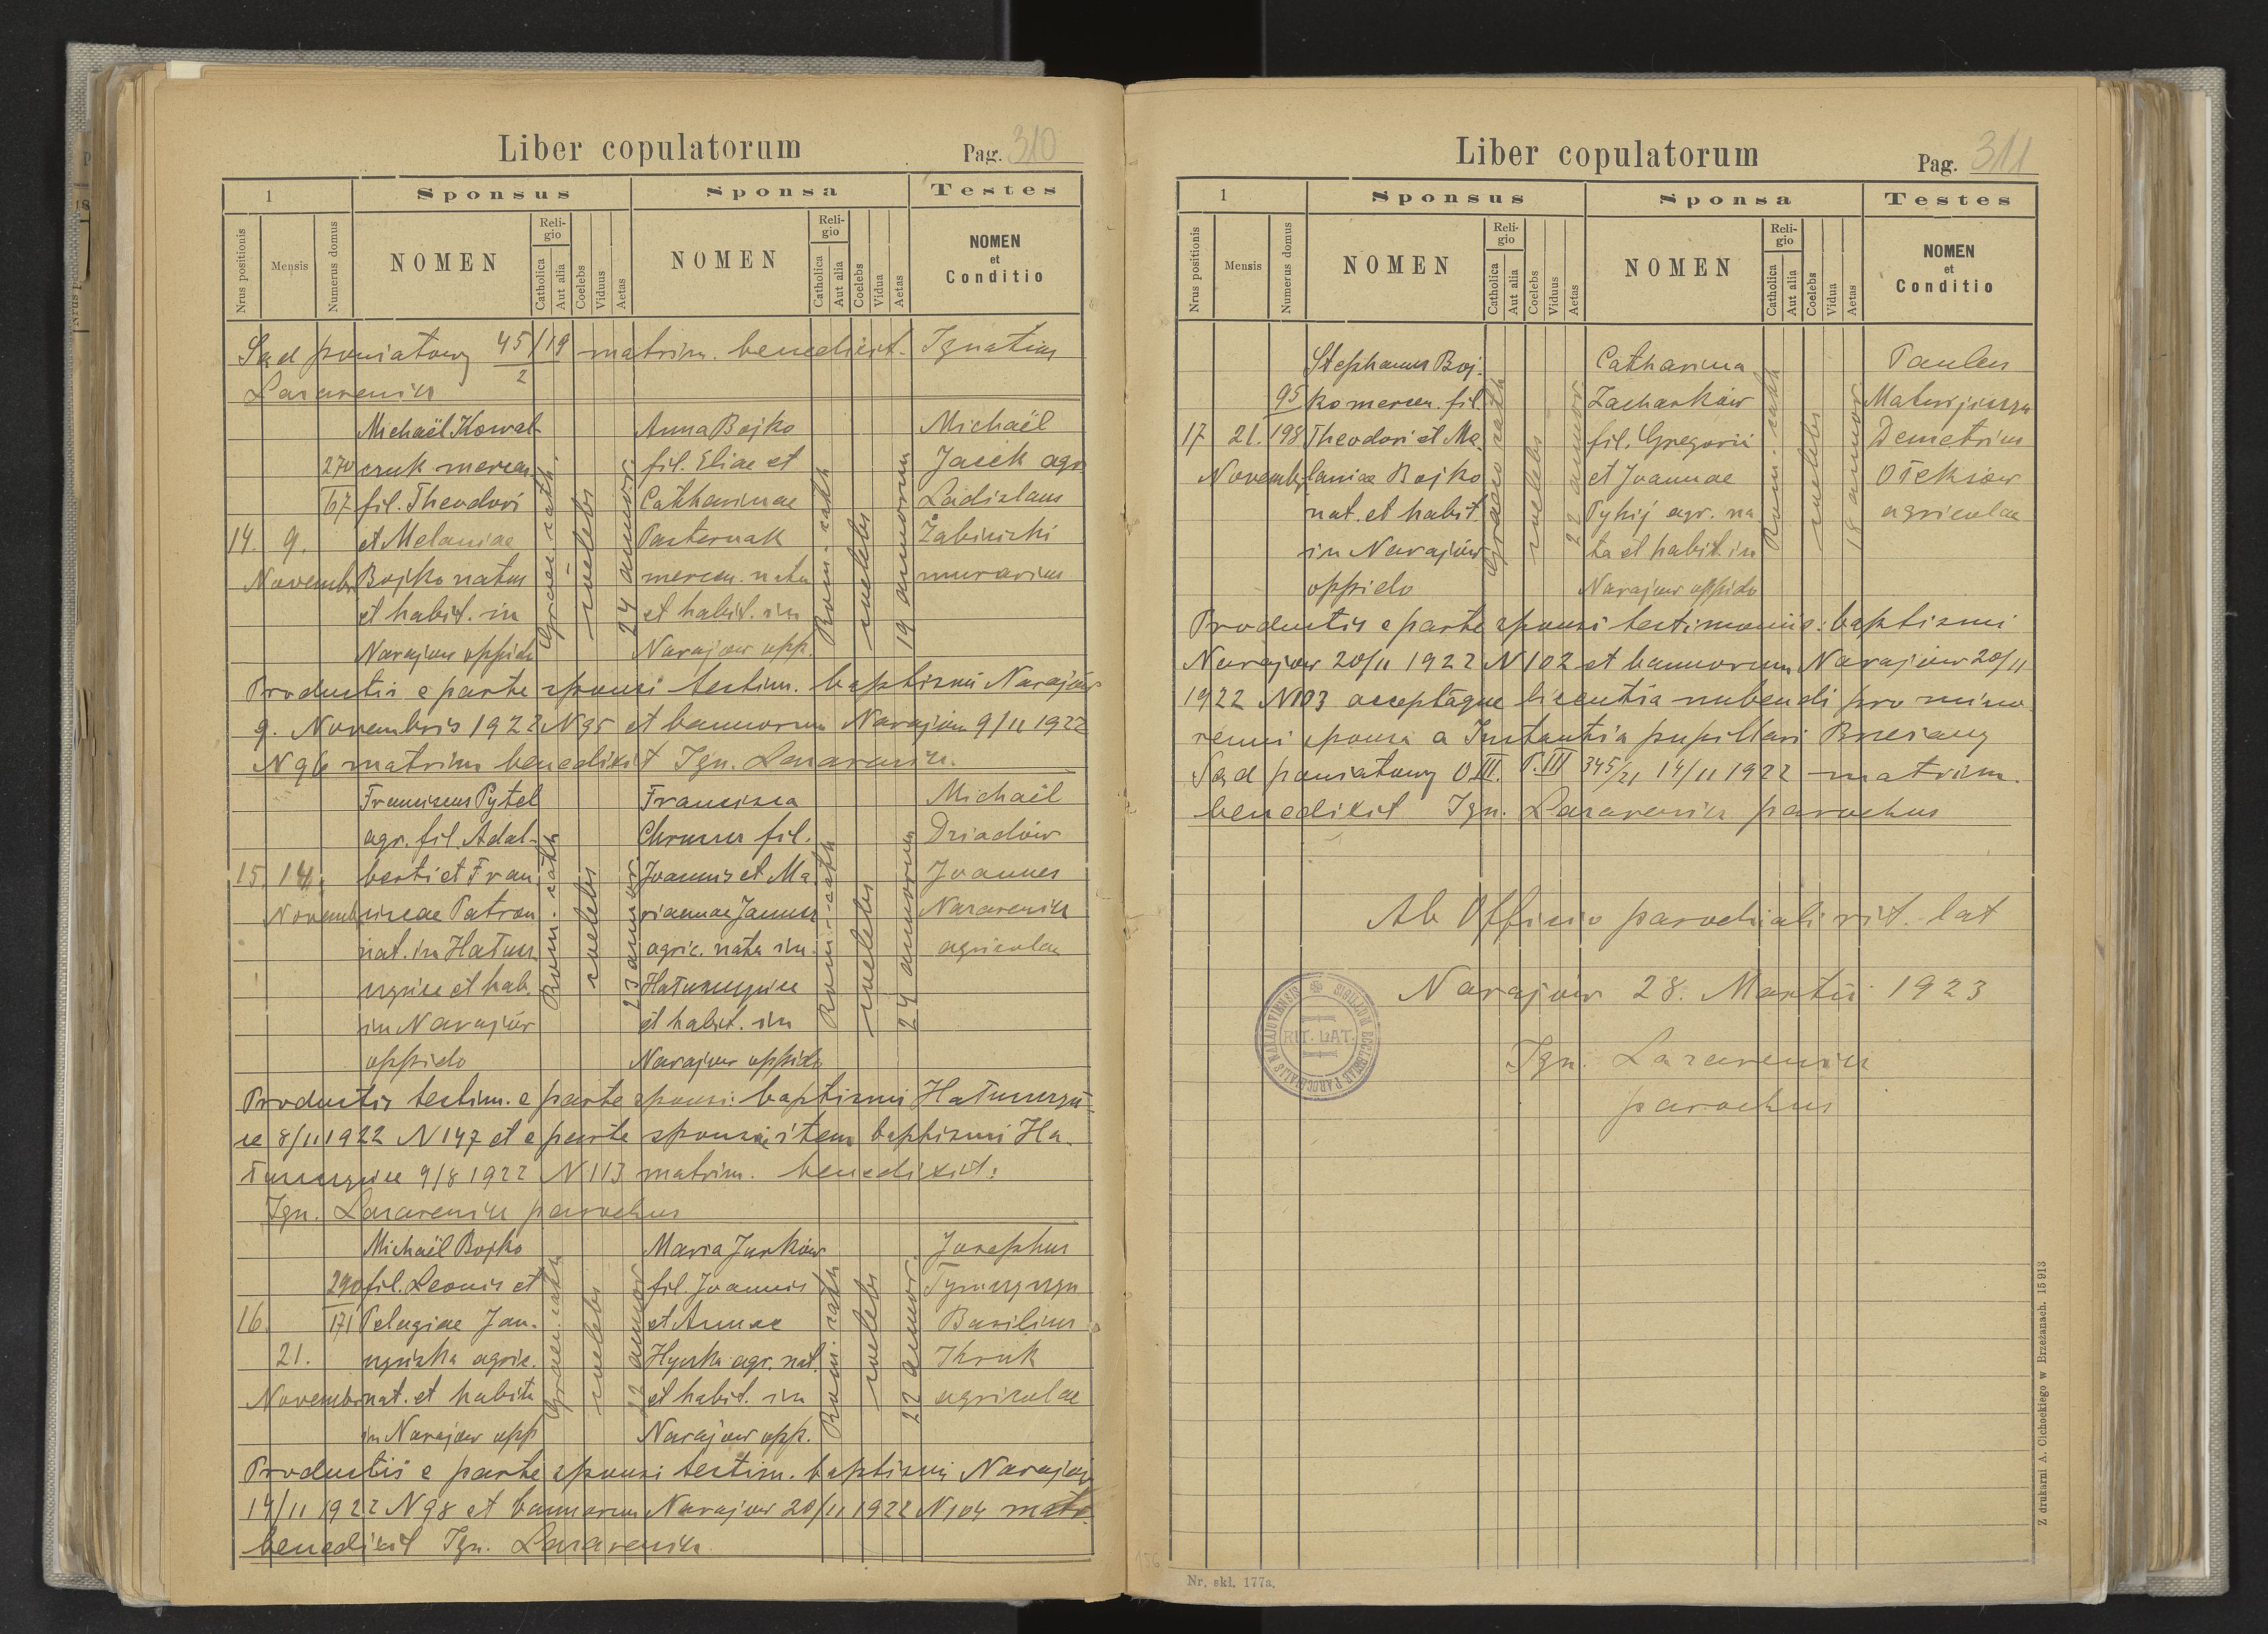 Liber copulatorum
Pag. 310
1
Sponsus
Sponsa
Testes
Nrus positionis
Mensis
Numerus domus
NOMEN
Religio
Catholica
Aut alia
Coelebs
Viduus
Aetas
NOMEN
Religio
Catholica
Aut alia
Coelebs
Vidua
Aetas
NOMEN
et
Conditio
Sąd powiatowy 45/19 matrim. benedixit. Ignatius
2
Lazarewicz
Michaël Kowal-
czuk mercen.
fil. Theodori
et Melaniae
Bojko natus
et habit. in
Narajow oppido
270
167
14. 9.
Novembr.
Graec. cath.
coelebs
24 annor.
Anna Bojko
fil. Eliae et
Catharinae
Pasternak
mercen. nata
et habit. in
Narajow opp.
Rom. cath
coelebs
19 annorum
Michaël
Jacek agr.
Ladislaus
Żabiński
murarius
Productis e parte sponsi testim. baptismi Narajów
9. Novembris 1922 N95 et bannorum Narajow 9/11 1922
N96 matrim benedixit Ign. Lazarewicz.
Franciscus Pytel
agr. fil. Adal-
berti et Fran
ciscae Patron
nat. in Hałusz
czyńce et hab.
in Narajów
oppido
15. 14.
Novemb
Rom. cath
coelebs
23 annor.
Francisca
Chrusz fil.
Joannis et Ma
riannae Janusz
agric. nata in
Hałuszczyńce
et habit. in
Narajow oppido
Rom. cath
coelebs
24 annorum
Michaël
Dziadów
Joannes
Nazarewicz
agricolae
Productis testim. e parte sponsi: baptismi Hałuszczyń-
ce 8/11 1922 N147 et e parte sponsae item baptismi Ha-
łuszczyńce 9/8 1922 N113 matrim. benedixit:
Ign. Lazarewicz parochus
Michaël Bojko
fil. Leonis et
Pelagiae Jan-
czyszka agric.
nat. et habita
in Narajow opp
290
171
16.
21.
Novembr
Graec. cath
coelebs
22 annor
Maria Jurków
fil. Joannis
et Annae
Hycka agr. nat.
et habit. in
Narajow opp.
Rom. cath
coelebs
22 annor.
Josephus
Tymczyszyn
Basilius
Kruk
agricolae
Productis e parte sponsi testim. baptismi Narajow
14/11 1922 N98 et bannorum Narajow 20/11 1922 N104 matr.
benedixit Ign. Lazarewicz
Liber copulatorum
Pag. 311
1
Sponsus
Sponsa
Testes
Nrus positionis
Mensis
Numerus domus
NOMEN
Religio
Catholica
Aut alia
Coelebs
Viduus
Aetas
NOMEN
Religio
Catholica
Aut alia
Coelebs
Vidua
Aetas
NOMEN
et
Conditio
Stephanus Boj-
ko mercen. fil.
Theodori et Me-
laniae Bojko
nat. et habit.
in Narajów
oppido
95
198
17 21.
Novemb.
Graeco cath
coelebs
22 annor
Catharina
Zacharków
fil. Gregorii
et Joannae
Pyhij agr. na
ta et habit. in
Narajow oppido
Rom. cath
coelebs
18 annor
Paulus
Matwijiszyn
Demetrius
Ołeksiow
agricolae
Productis e parte sponsi testimoniis: baptismi
Narajow 20/11 1922 N102 et bannorum Narajow 20/11
1922 N103 acceptaque licentia nubendi pro mino
renni sponsa a Instantia pupillari Brzeżany
Sąd powiatowy O III. P. III 345/21 14/11 1922 matrim.
benedixit Ign. Lazarewicz parochus
Ab Officio parochiali rit. lat
Narajow 28. Martii 1923
Ign. Lazarewicz
parochus
SIGILLUM ECCLESIAE PAROCHIALIS NARAJOVIENSIS
RIT. LAT.
Z drukarni A. Cichockiego w Brzeżanach. 15 913
156
Nr. skł. 177a.